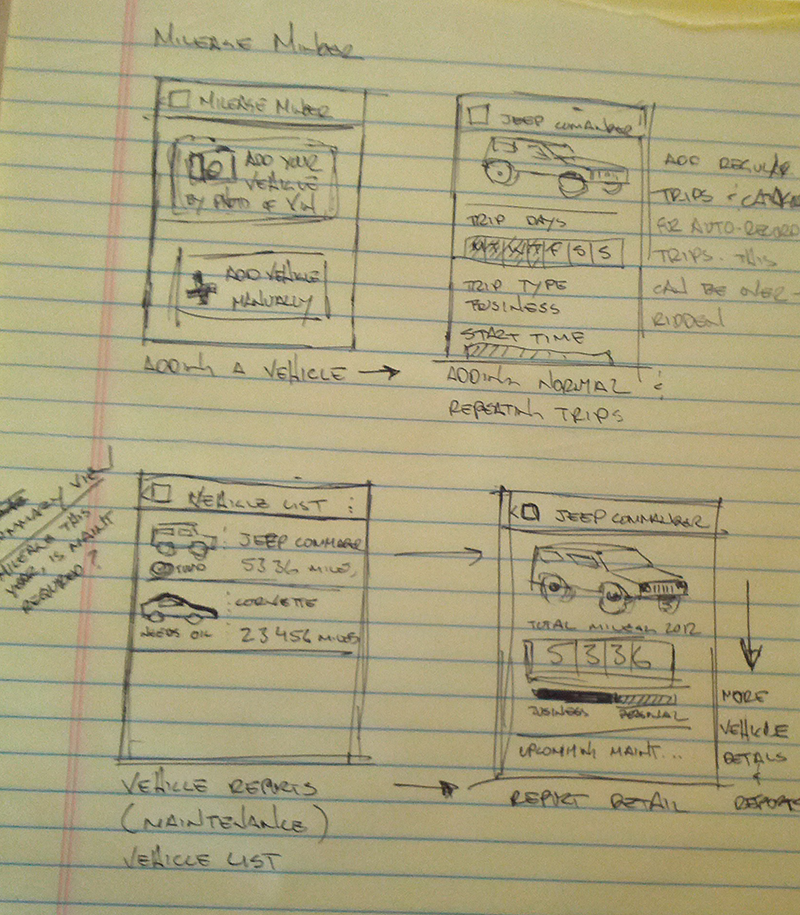 MILEAGE MINDER
MILEAGE MINDER
ADD YOUR
VEHICLE
BY PHOTO OF VIN
ADD VEHICLE
MANUALLY
ADDING A VEHICLE →
JEEP COMANDER
TRIP DAYS
M T W T F S S
TRIP TYPE
BUSINESS
START TIME
ADDING NORMAL &
REPEATING TRIPS
ADD REGULAR
TRIPS &
FOR AUTO-RECORD
TRIPS. THIS
CAN BE OVER-
RIDDEN
MILEAGE THIS
YEAR, IS MAINT
REQUIRED?
VEHICLE LIST :
: JEEP COMMANDER
5336 MILES,
: CORVETTE
NEEDS OIL : 23456 MILES
VEHICLE REPORTS →
(MAINTENANCE)
VEHICLE LIST
< JEEP COMMANDER
TOTAL MILEAGE 2012
5336
BUSINESS PERSONAL
UPCOMMING MAINT...
REPORT DETAIL
MORE
VEHICLE
DETAILS
&
REPORTS